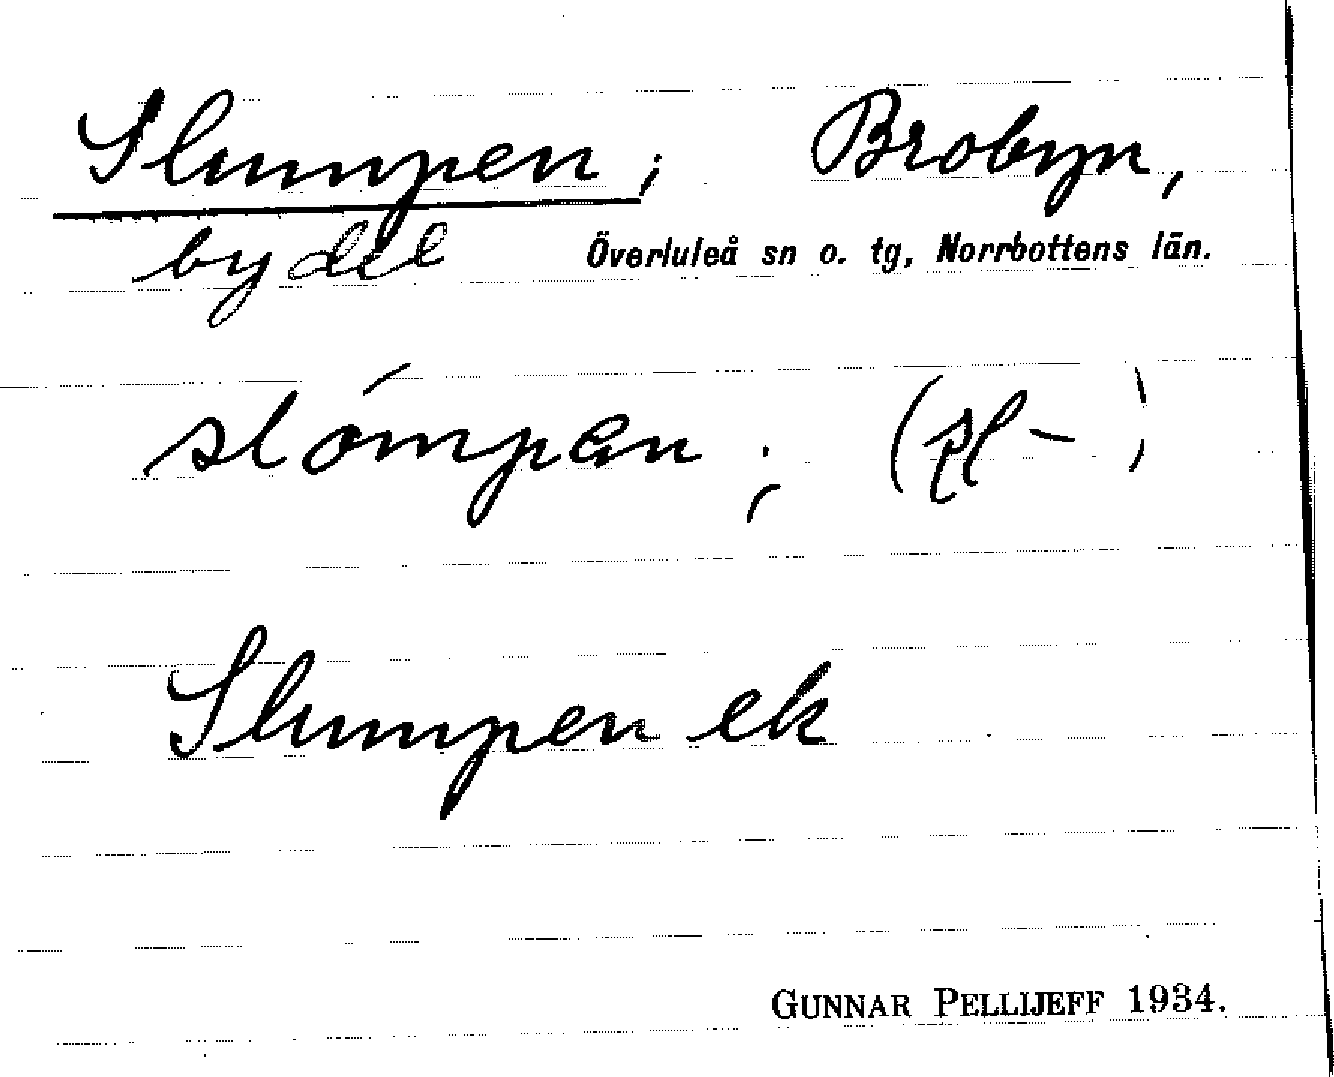 Slumpen; Brobyn,
bydel Överluleå sn o. tg, Norrbottens län.
slómpen ; (pl –)
Slumpen ek
GUNNAR PELLIJEFF 1934.